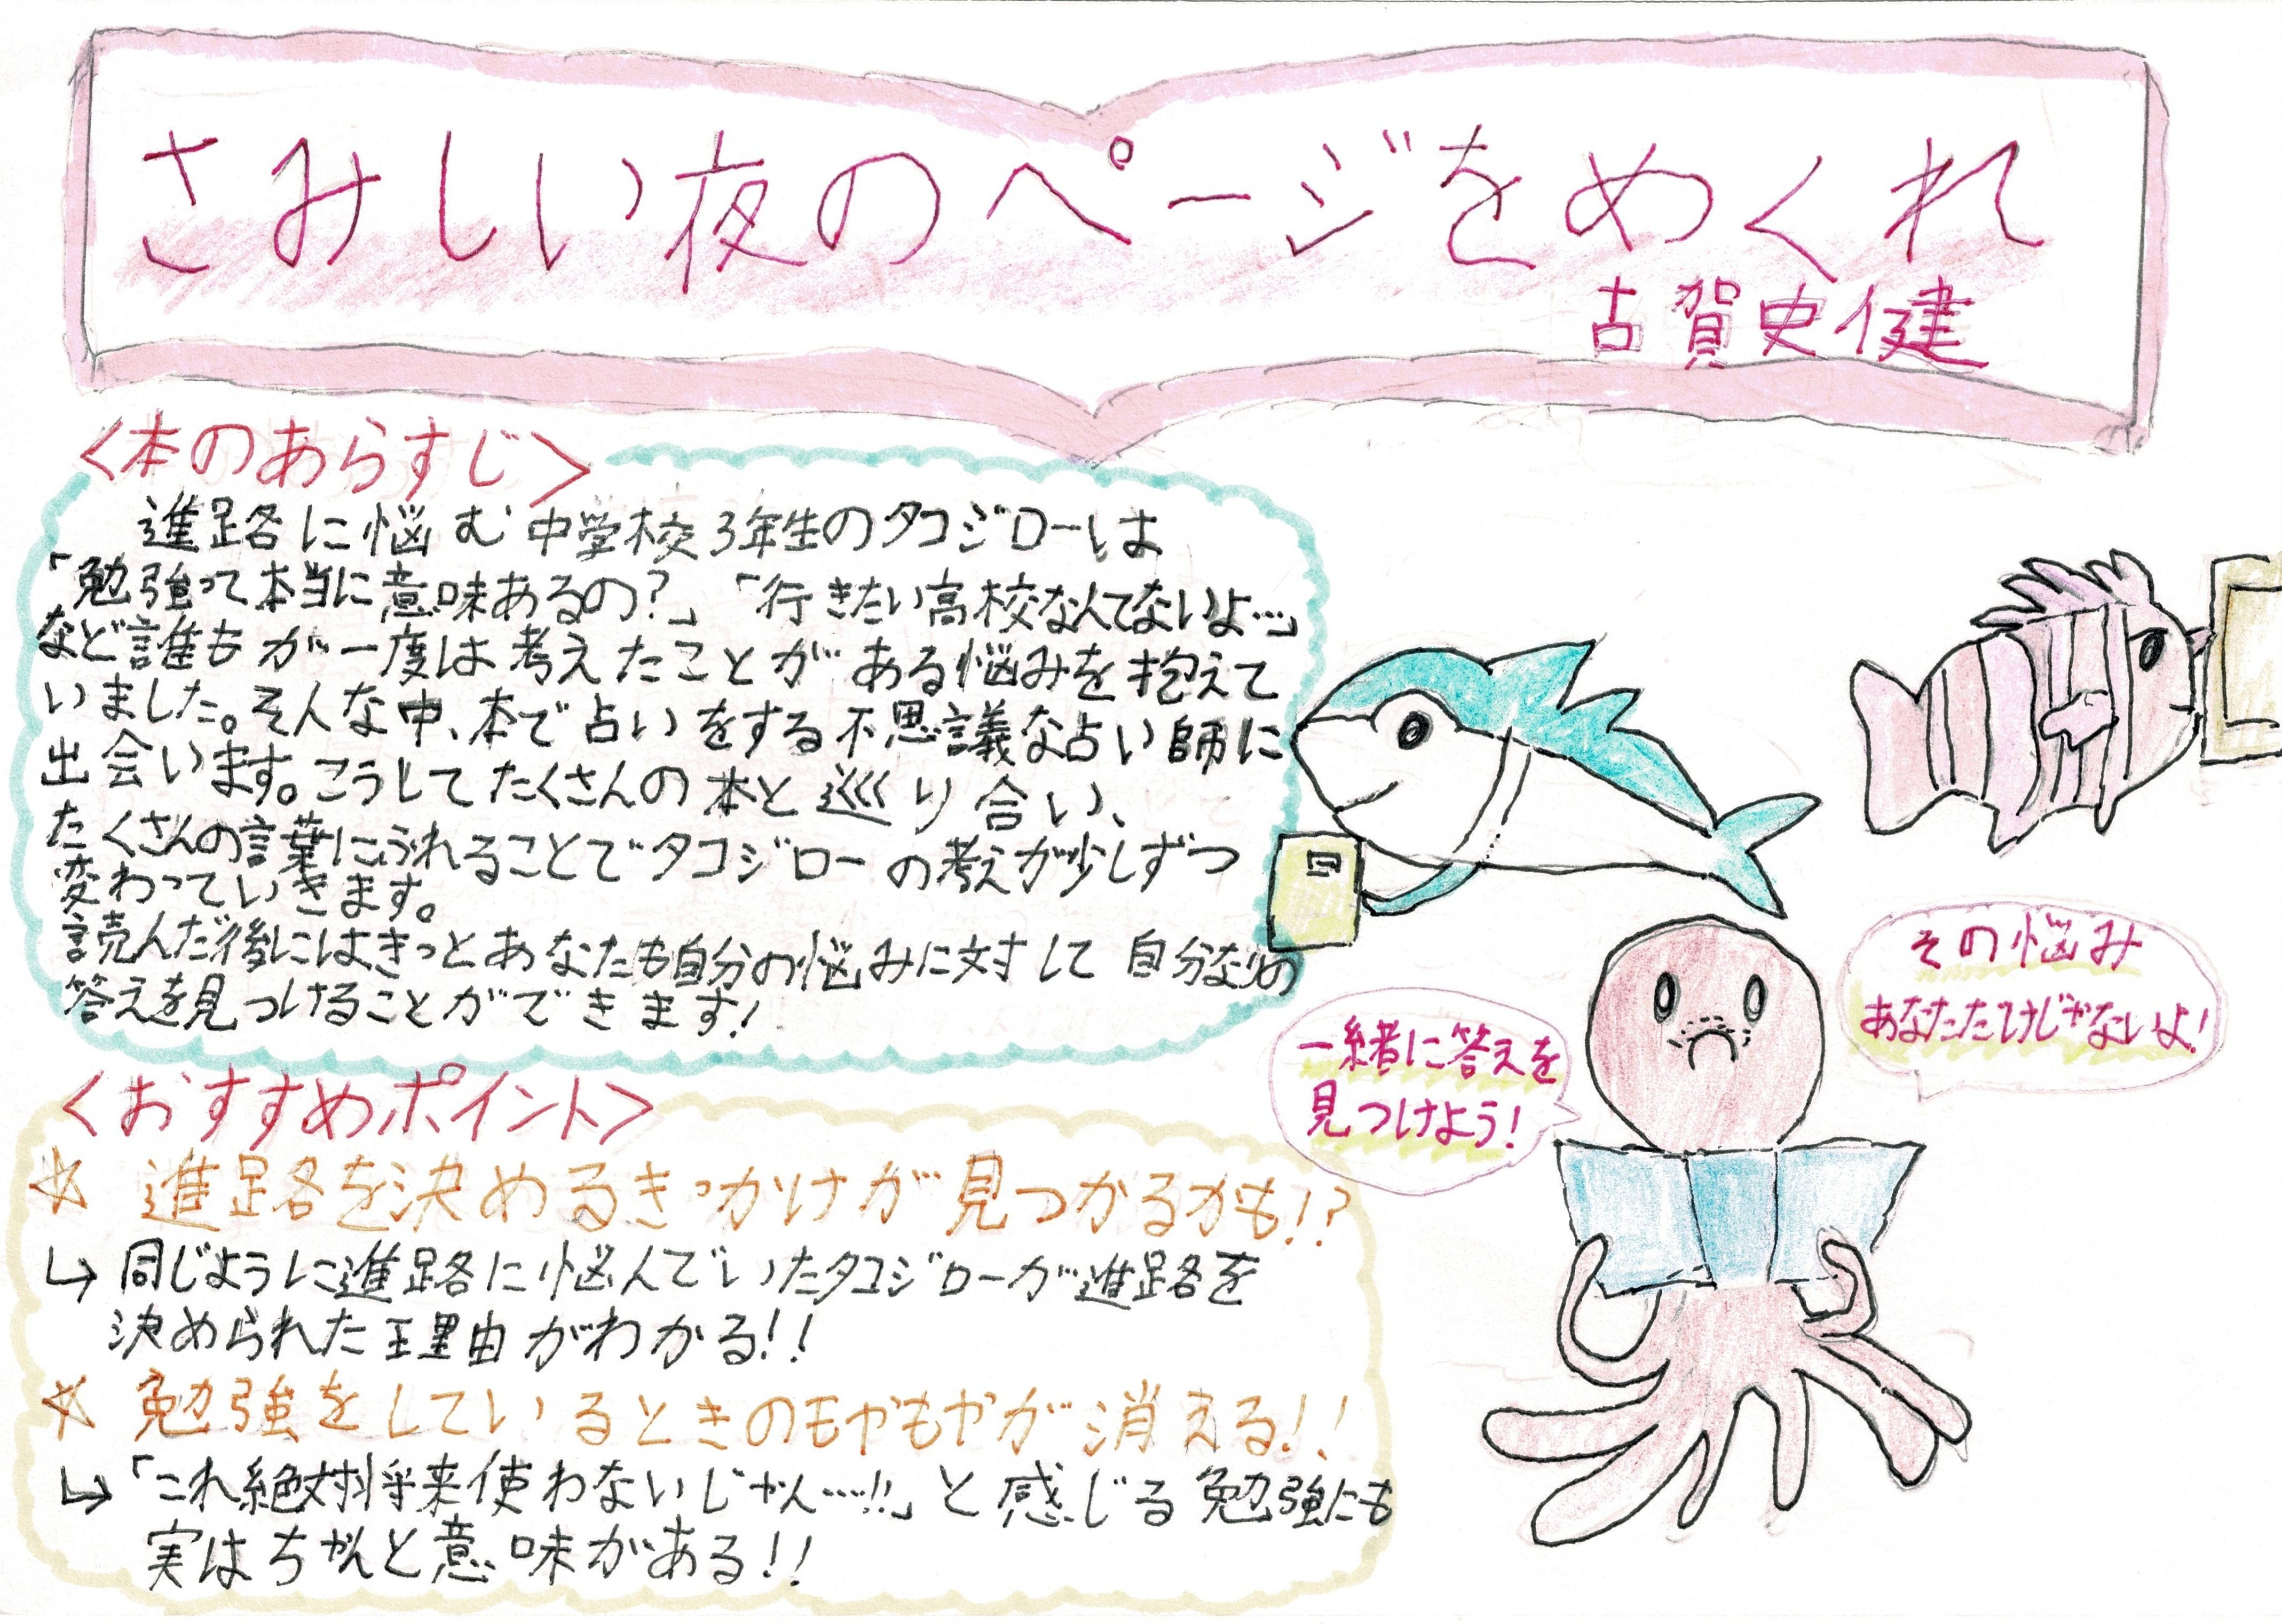 さみしい夜のページをめくれ
古賀史健
<本のあらすじ>
進路に悩む中学校3年生のタコジローは
「勉強って本当に意味あるの?」「行きたい高校なんてないよ…」
など誰もが一度は考えたことがある悩みを抱えて
いました。そんな中、本で占いをする不思議な占い師に
出会います。こうしてたくさんの本と巡り合い、
たくさんの言葉にふれることでタコジローの考えが少しずつ
変わっていきます。
読んだ後にはきっとあなたも自分の悩みに対して自分なりの
答えを見つけることができます!
<おすすめポイント>
☆ 進路を決めるきっかけが見つかるかも!?
↳ 同じように進路に悩んでいたタコジローが進路を
決められた理由がわかる!!
☆ 勉強をしているときのモヤモヤが消える!!
↳ 「これ絶対将来使わないじゃん…!!」と感じる勉強にも
実はちゃんと意味がある!!
一緒に答えを
見つけよう!
その悩み
あなただけじゃないよ!